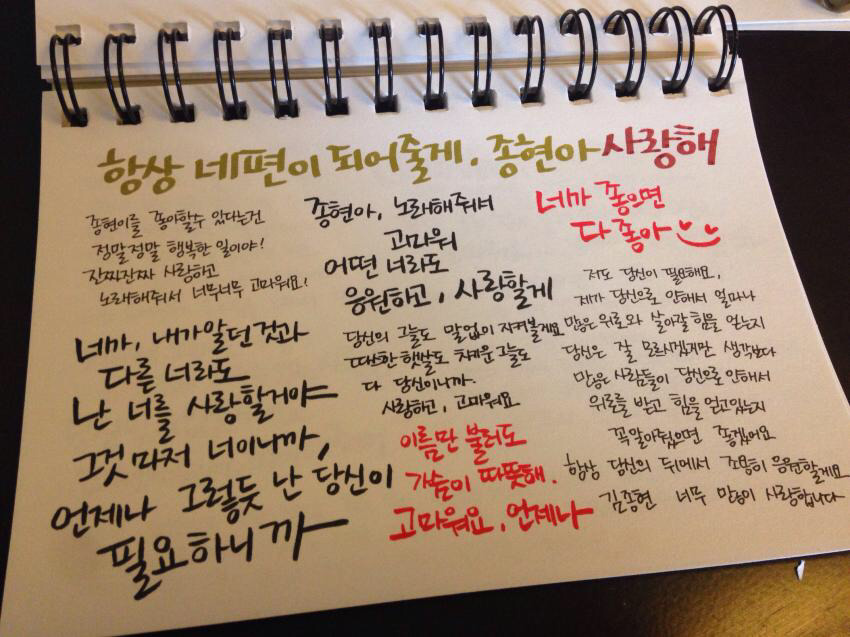 항상 네편이 되어줄게. 종현아 사랑해
종현이를 좋아할수 있다는건
정말정말 행복한 일이야!
진짜진짜 사랑하고
노래해줘서 너무너무 고마워요!
너가, 내가알던것과
다른 너라도
난 너를 사랑할거야
그것마저 너이니까,
언제나 그렇듯 난 당신이
필요하니까
종현아, 노래해줘서
고마워
어떤 너라도
응원하고, 사랑할게
당신의 그늘도 말없이 지켜볼게요
따스한 햇살도 차가운 그늘도
다 당신이니까.
사랑하고, 고마워요
이름만 불러도
가슴이 따뜻해.
고마워요, 언제나
너가 좋으면
다 좋아
저도 당신이 필요해요,
제가 당신으로 인해서 얼마나
많은 위로와 살아갈 힘을 얻는지
당신은 잘 모르시겠지만 생각보다
많은 사람들이 당신으로 인해서
위로를 받고 힘을 얻고있는지
꼭 알아줬으면 좋겠어요
항상 당신의 뒤에서 조용히 응원할게요
김종현 너무 많이 사랑합니다